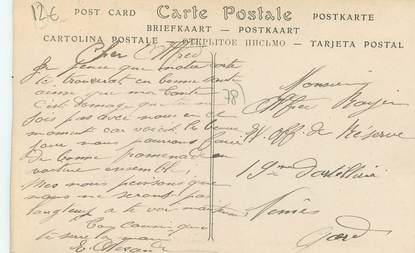 126
POST CARD Carte Postale POSTKARTE
BRIEFKAART — POSTKAART
CARTOLINA POSTALE — ОТКРЫТОЕ ПИСЬМО — TARJETA POSTAL
Cher Alfred
Je pense que notre carte
te trouvera en bonne santé
ainsi que ma tante
C'est domage que tu ne
sois pas avec nous en ce
moment car voici le
pour nous pouvons faire
de bonne promenade en
voiture ensemble,
Mais nous pensons que
nous ne serons pas
longtemps à te voir maintenant
Ton cousin que
te serre la main
E.
78)
Monsieur
Alfred
Off. de Réserve
19ème d'artillerie
Nimes
Gard